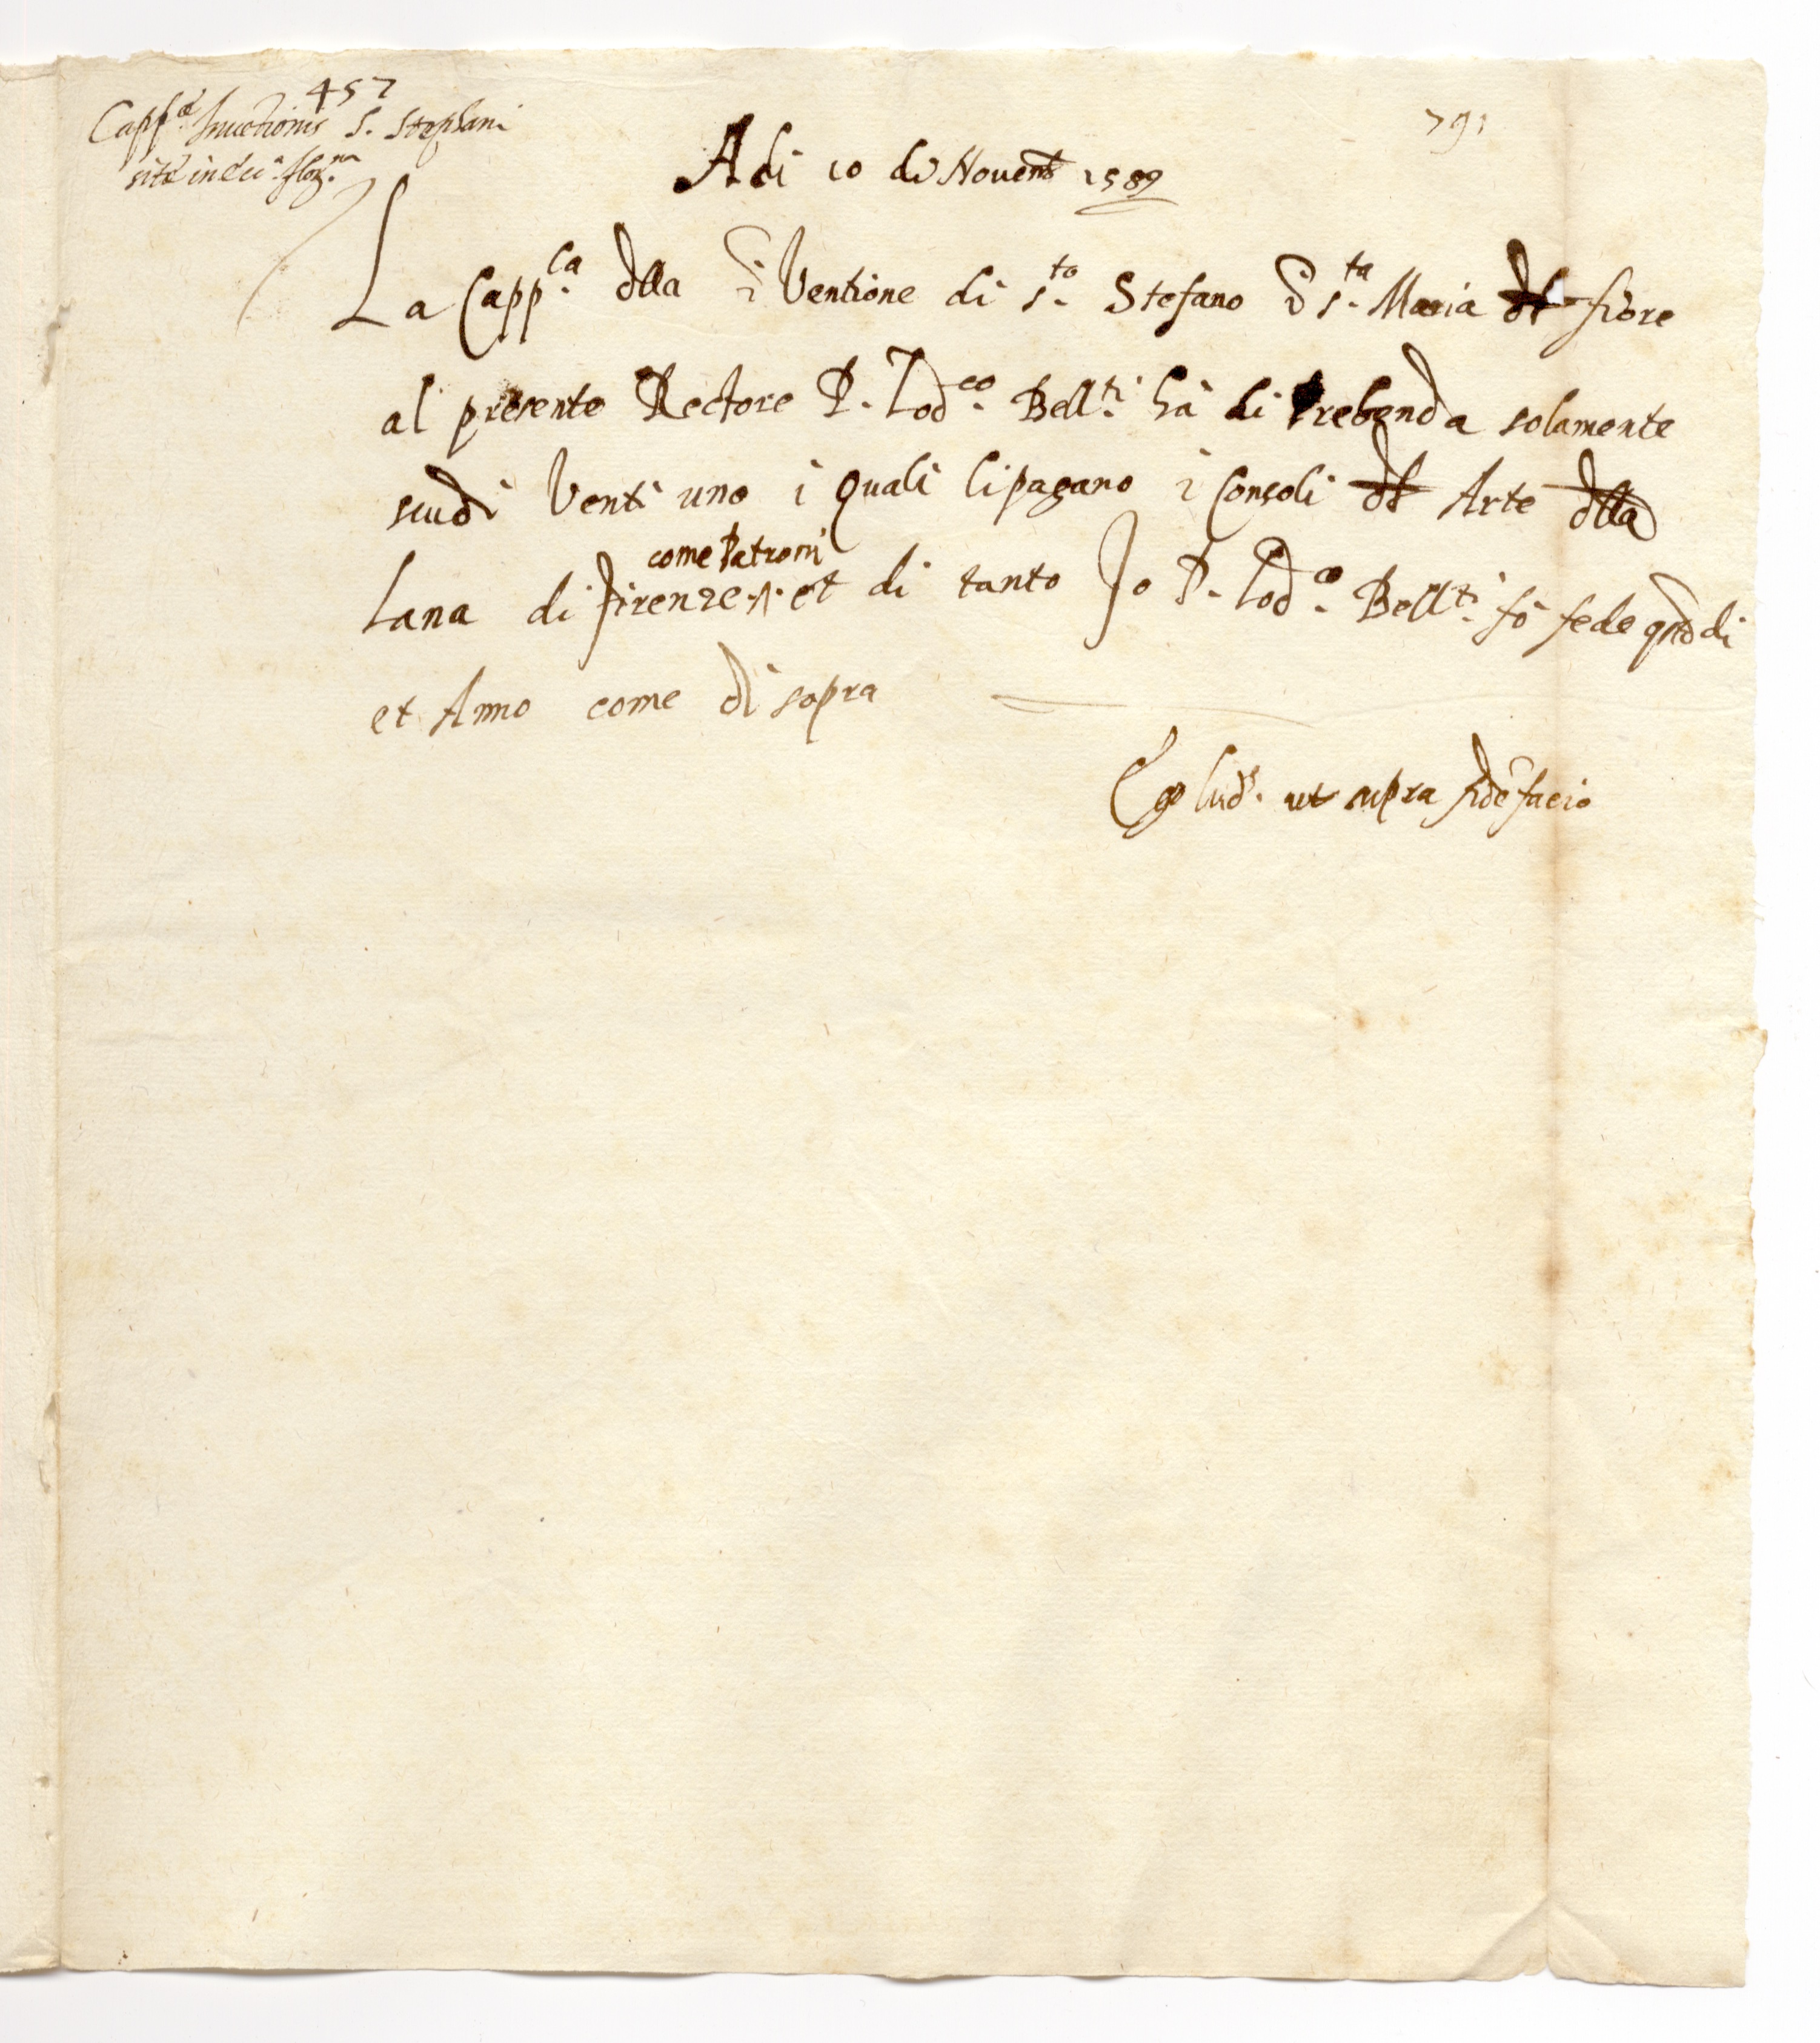 457
Capp.ᵃ Inuētionis S. Stephani
sitᵉ in ecc.ᵃ flor.ⁿᵃ
791
Adi 10 di Novemb 1589
La Capp.ᶜᵃ dlla ĩ Ventione di s.ᵗᵒ Stefano ĩ s.ᵗᵃ Maria dl fiore
al presente Rectore P. Lod.ᶜᵒ Bell.ᵗⁱ hà di Prebenda solamente
scudi Venti uno i Quali li pagano i Consoli dl Arte dlla
come Patroni
Lana di firenze .^. et di tanto Jo P. Lod.ᶜᵒ Bell.ᵗⁱ fò fede qſto di
et Anno come di sopra
Ego Lud.ˢ ut supra fidē facio